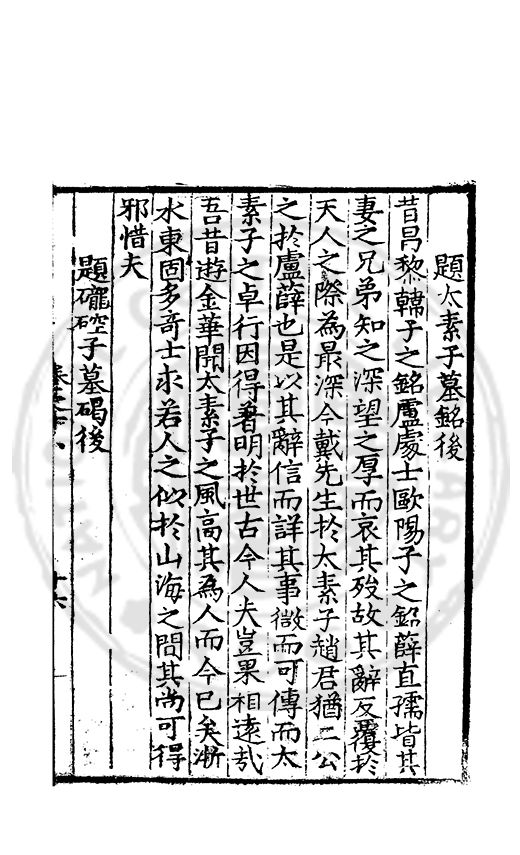 題太素子墓銘後
昔昌黎韓子之銘盧處士歐陽子之銘薛直孺皆其
妻之兄弟知之深望之厚而哀其歿故其辭反覆於
天人之際為最深今戴先生於太素子趙君猶二公
之於盧薛也是以其辭信而詳其事微而可傳而太
素子之卓行因得著明於世古今人夫豈果相遠哉
吾昔遊金華聞太素子之風高其為人而今已矣浙
水東固多奇士求若人之似於山海之間其尚可得
邪惜夫
題礲硿子墓碣後
十六